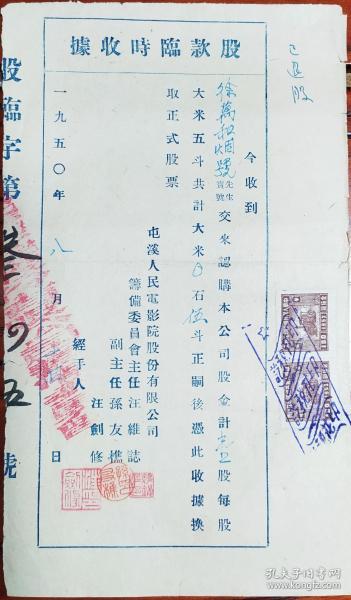 股款臨時收據
已退股
今收到
徐萬和烟號 先生 寶號 交來認購本公司股金計 股每股
大米五斗共計大米0石伍斗正嗣後憑此收據換
取正式股票
屯溪人民電影院股份有限公司
籌備委員會主任汪維誌
副主任孫友樵
經手人 汪劍修
一九五〇年八月 日
股臨字第叁 四五號
孔夫子旧书网